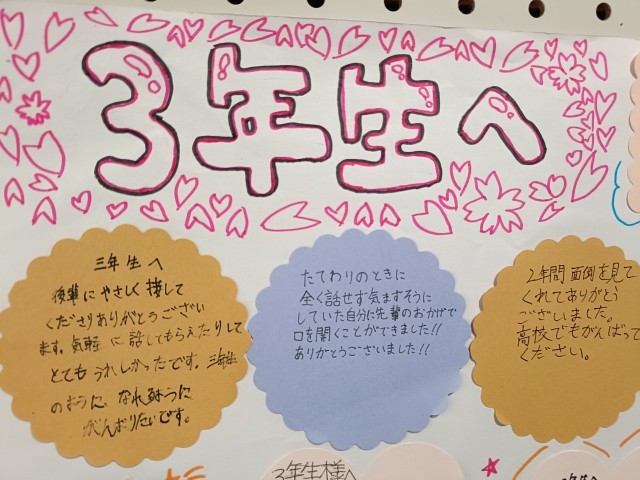 3年生へ
三年生へ
後輩にやさしく接して
くださりありがとうござい
ます。気軽に話してもらえたりして
とてもうれしかったです。三年生
のように、なれるように
がんばりたいです。
たてわりのときに
全く話せず気まずそうに
していた自分に先輩のおかげで
口を開くことができました!!
ありがとうございました!!
2年間面倒を見て
くれてありがとう
ございました。
高校でもがんばって
ください。
3年生様へ